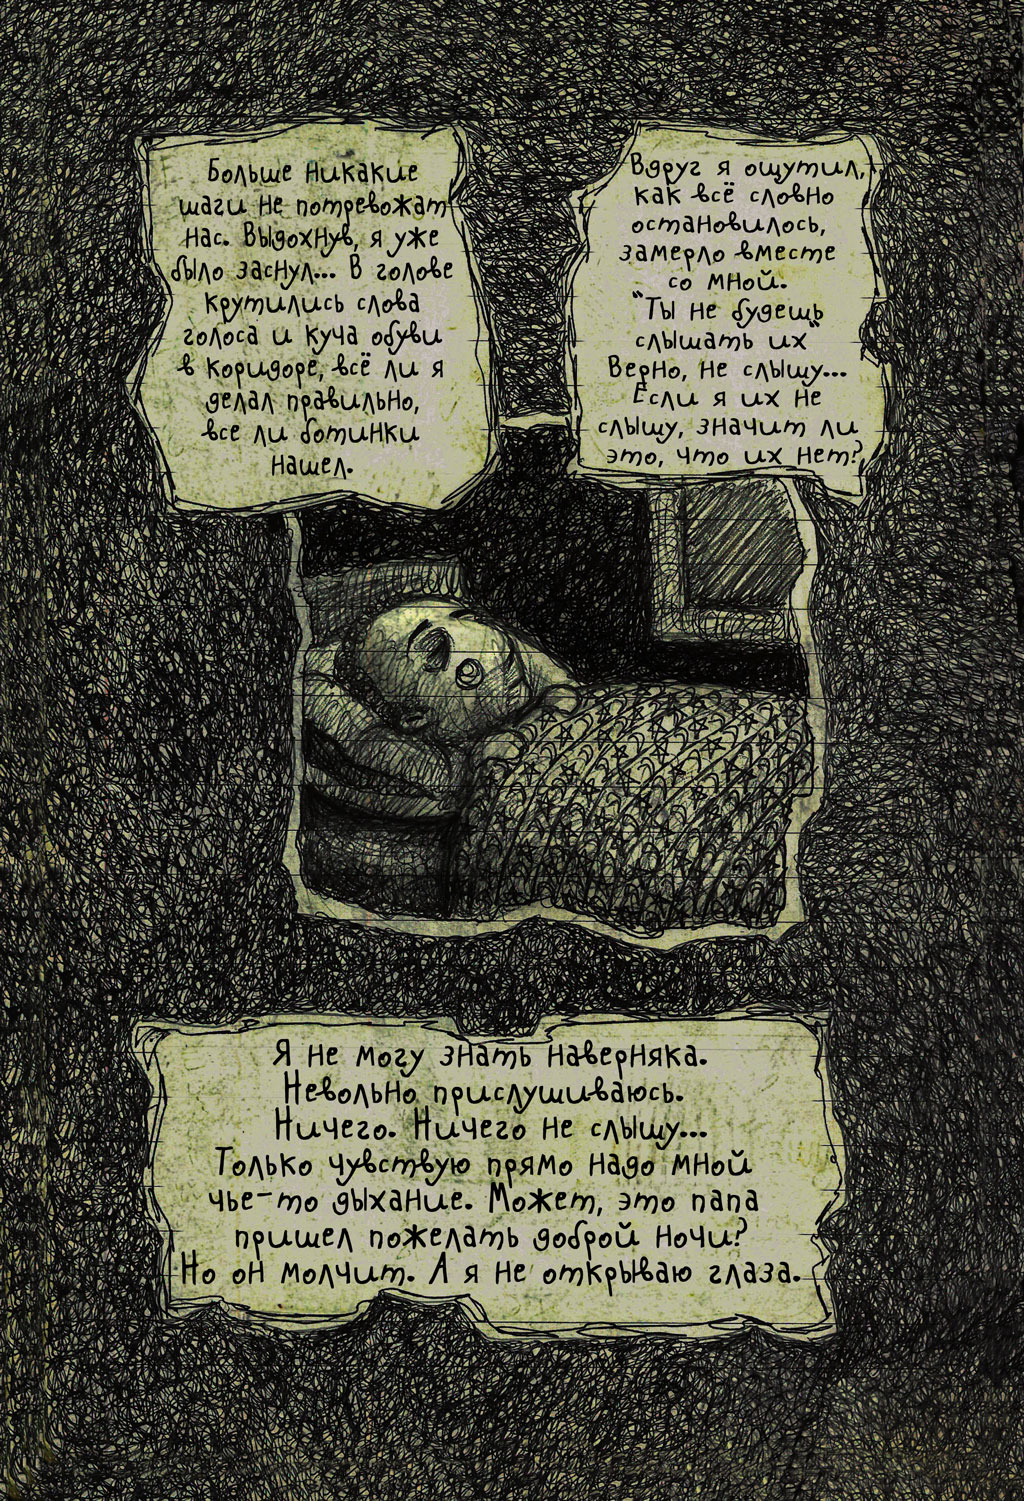 Больше никакие
шаги не потревожат
нас. Выдохнув, я уже
было заснул... В голове
крутились слова
голоса и куча обуви
в коридоре, всё ли я
делал правильно,
все ли ботинки
нашел.
Вдруг я ощутил,
как всё словно
остановилось,
замерло вместе
со мной.
"Ты не будешь
слышать их"
Верно, не слышу...
Если я их не
слышу, значит ли
это, что их нет?
Я не могу знать наверняка.
Невольно прислушиваюсь.
Ничего. Ничего не слышу...
Только чувствую прямо надо мной
чье-то дыхание. Может, это папа
пришел пожелать доброй ночи?
Но он молчит. А я не открываю глаза.